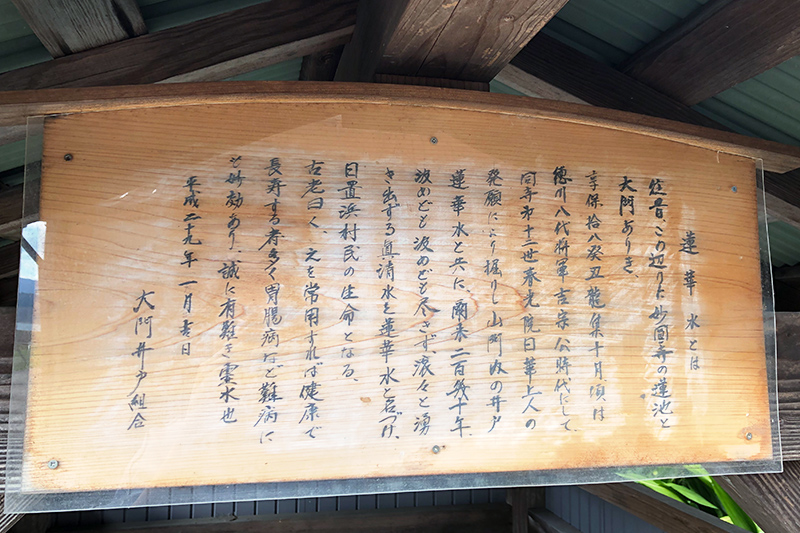 蓮華水とは
往昔この辺りに妙圓寺の蓮池と
大門ありき、
享保拾八癸丑龍集十月頃は
徳川八代将軍吉宗公時代にして、
同寺第十二世春光院日華上人の
発願により掘りし山門内の井戸
蓮華水と共に、爾来二百幾十年、
汲めども汲めども尽きず、滾々と湧
き出ずる真清水を蓮華水と名づけ、
日置浜村民の生命となる、
古老曰く、之を常用すれば健康で
長寿する者多く胃腸病など難病に
も妙効あり、誠に有難き霊水也
平成二十九年一月吉日
大門井戸組合